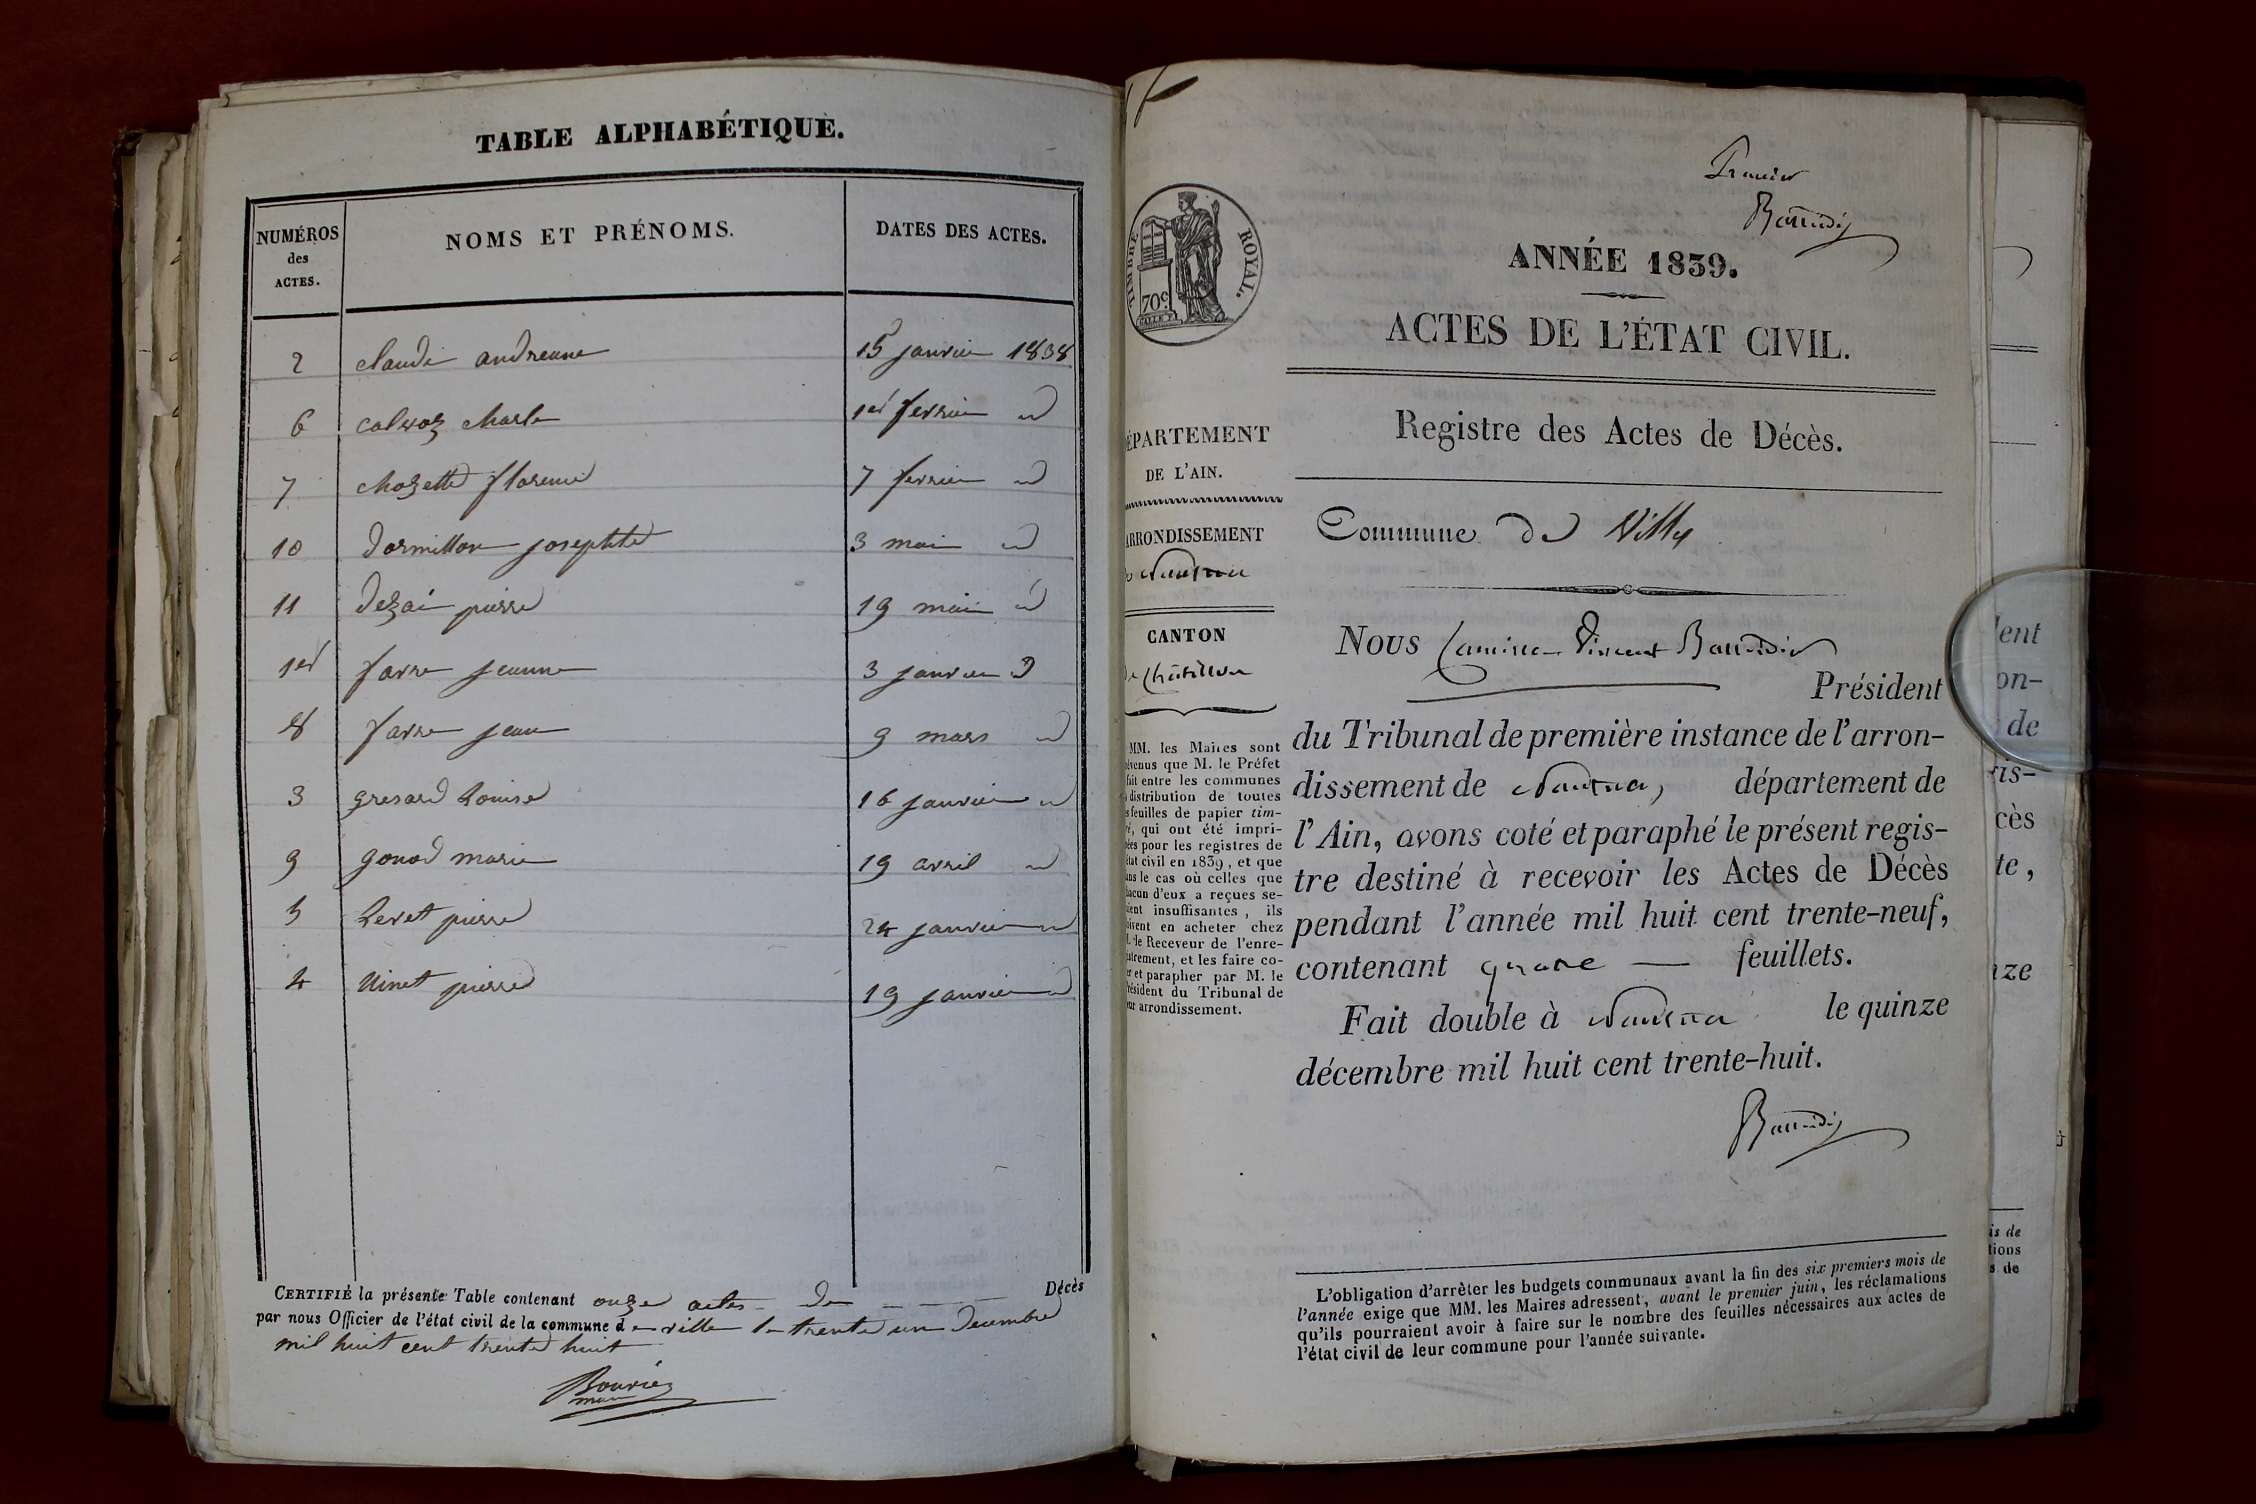 TABLE ALPHABÉTIQUE.
NUMÉROS des ACTES.
NOMS ET PRÉNOMS.
DATES DES ACTES.
2 claude andreane 15 janvier 1838
6 calvoz charle 1er fevrier d
7 chozette florence 7 fevrier d
10 dormillon josephte 3 mai d
11 dezai pierre 19 mai d
1er favre jeanne 3 janvier d
8 favre jean 9 mars d
3 gresard Louise 16 janvier d
9 gonod marie 19 avril d
5 Levet pierre 24 janvier d
4 Ninet pierre 19 janvier d
CERTIFIÉ la présente Table contenant onze actes de Décès
par nous Officier de l'état civil de la commune de ville le trente un decembre
mil huit cent trente huit
Bouvier
maire
Premier
Baudin
TIMBRE ROYAL.
70c
ANNÉE 1839.
ACTES DE L'ÉTAT CIVIL.
Registre des Actes de Décès.
ÉPARTEMENT
DE L'AIN.
RRONDISSEMENT
Nantua
CANTON
de Châtillon
Commune de Ville
Nous Vincent
Président
du Tribunal de première instance de l'arron-
dissement de Nantua, département de
l'Ain, avons coté et paraphé le présent regis-
tre destiné à recevoir les Actes de Décès
pendant l'année mil huit cent trente-neuf,
contenant quatre feuillets.
Fait double à Nantua le quinze
décembre mil huit cent trente-huit.
MM. les Maires sont
évenus que M. le Préfet
fait entre les communes
distribution de toutes
s feuilles de papier tim-
é, qui ont été impri-
ées pour les registres de
état civil en 1839, et que
ns le cas où celles que
hacun d'eux a reçues se-
ient insuffisantes, ils
oivent en acheter chez
. le Receveur de l'enre-
istrement, et les faire co-
er et parapher par M. le
résident du Tribunal de
ur arrondissement.
L'obligation d'arrêter les budgets communaux avant la fin des six premiers mois de
l'année exige que MM. les Maires adressent, avant le premier juin, les réclamations
qu'ils pourraient avoir à faire sur le nombre des feuilles nécessaires aux actes de
l'état civil de leur commune pour l'année suivante.
lent
on-
de
ris-
cès
te,
nze
is de
tions
s de